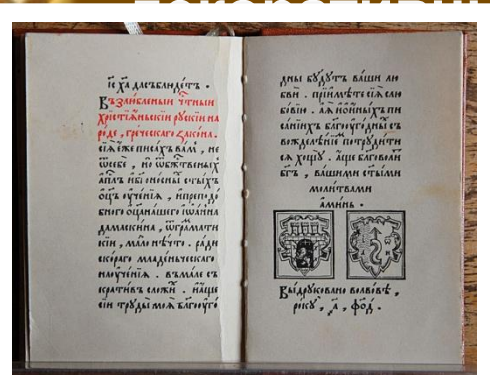 і҃с х҃а да съблюдетъ .
Възлюбленыи чⷭ҇тныи
Хрⷭ҇тїѧньскїи рꙋскїи на
роде , греческаго закона .
сїѧ еже писахъ вам , не
ѿ себе , но ѿ бж҃ственыхъ
ап҃лъ ибг҃оносныⷯ ст҃ыхъ
ѻц҃ъ оученїѧ , и преподо
бнаго ѻц҃а нашего іѡанна
дамаскина , ѿ грамати
кїи , мало нѣчто . ради
скораго младеньческаго
наоученїѧ . въмале съ
кративъ сложиⷯ . и аще
сїи трꙋды моѧ бл҃гооуго
дны бꙋдꙋтъ ваши лю
бви . прїимѣте сїѧ слю
бовїю . а ѧ иѡ иныхъ пи
санїиⷯъ бл҃гооугодныⷯ съ
вожделѣнїе потрꙋдити
сѧ хощꙋ . аще бл҃говоли
бг҃ъ , вашими ст҃ыми
молитвами
аминь .
Выдрꙋковано во львовѣ ,
рокꙋ , ҂а , фо҃д .